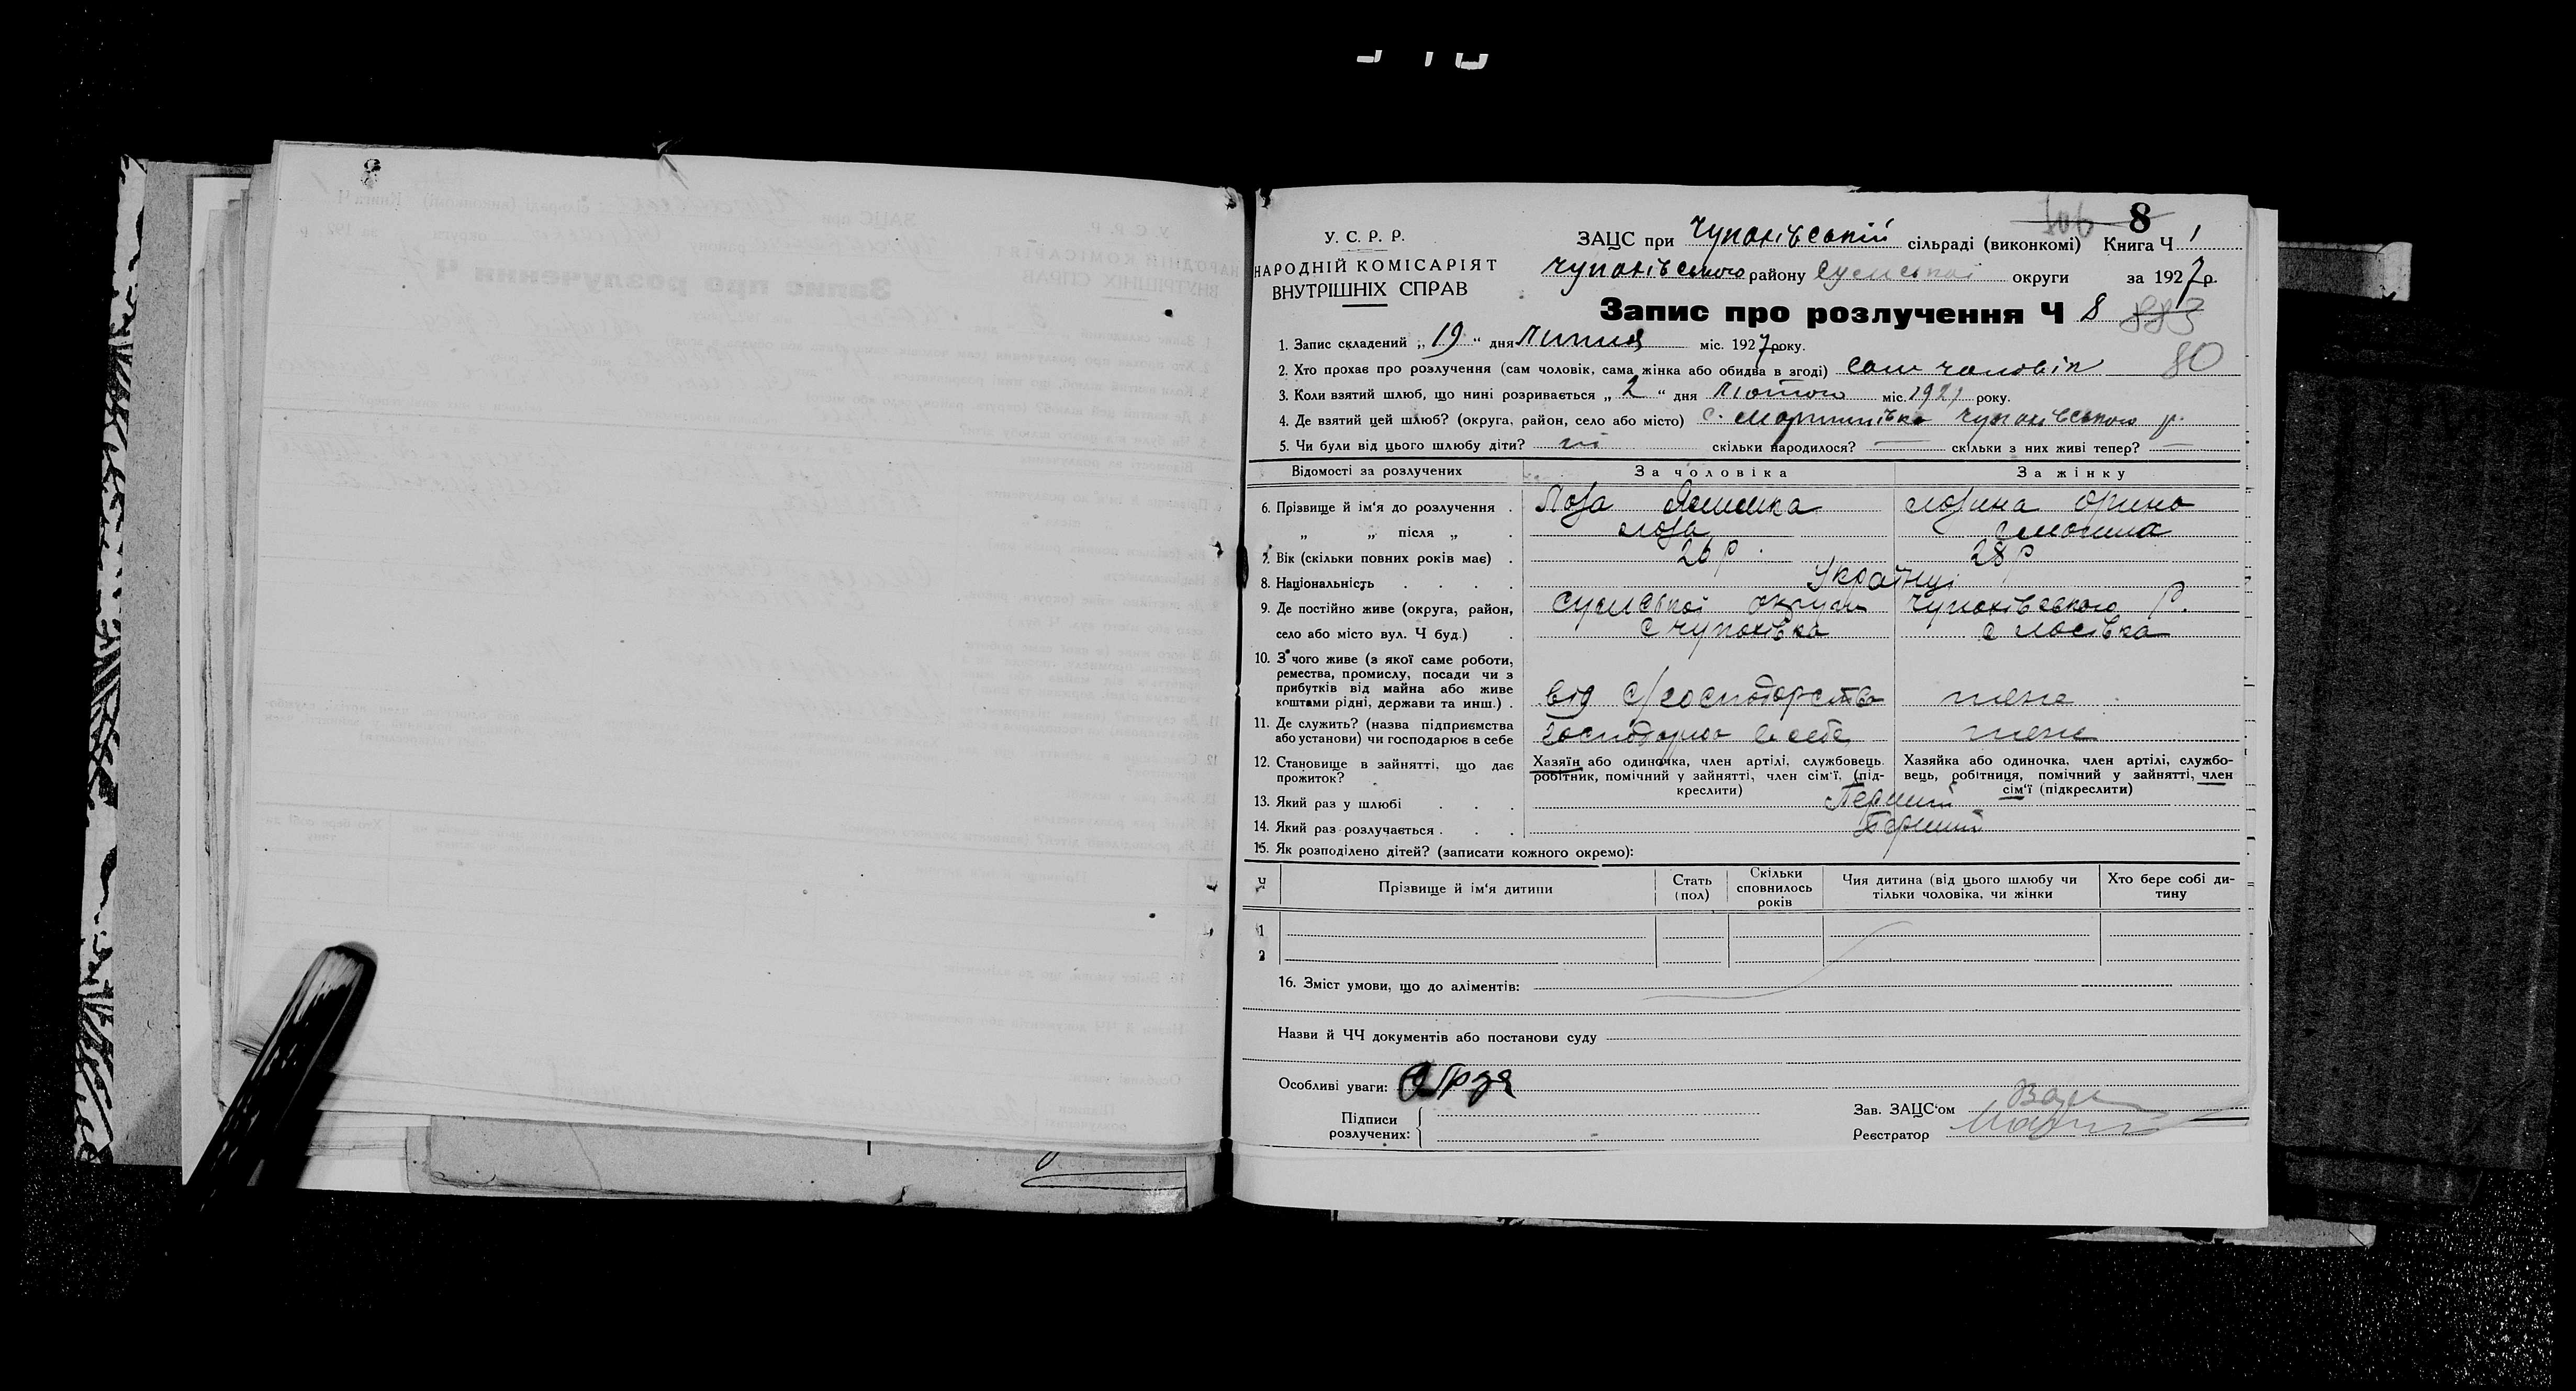 8
8
У. С. Р. Р.
НАРОДНІЙ КОМІСАРІЯТ
ВНУТРІШНІХ СПРАВ
ЗАЦС при Чупахівській сільраді (виконкомі) Книга Ч 1
Чупахівського району Сумської округи за 1927 р.
Запис про розлучення Ч 8
80
1. Запис складений „ 19 “ дня Липня міс. 1927 року.
2. Хто прохає про розлучення (сам чоловік, сама жінка або обидва в згоді) сам чоловік
3. Коли взятий шлюб, що нині розривається „ 2 “ дня Лютого міс. 1927 року.
4. Де взятий цей шлюб? (округа, район, село або місто) с. Мартинівка Чупахівського р.
5. Чи були від цього шлюбу діти? ні скільки народилося? — скільки з них живі тепер? —
Відомості за розлучених За чоловіка За жінку
6. Прізвище й ім‘я до розлучення . Лоза Лозина Орина
„ „ після „ . Лоза
7. Вік (скільки повних років має) . 26 р. 28 р
8. Національність . . . . Українці
9. Де постійно живе (округа, район, Сумської округи Чупахівського р.
село або місто вул. Ч буд.) . с Чупахівка с Лосівка
10. З чого живе (з якої саме роботи,
ремества, промислу, посади чи з
прибутків від майна або живе
коштами рідні, держави та инш.) . від с/господарства теже
11. Де служить? (назва підприємства
або установи) чи господарює в себе господарює в себе теже
12. Становище в зайнятті, що дає
прожиток?
Хазяїн або одиночка, член артілі, службовець.
робітник, помічний у зайнятті, член сім‘ї, (під-
креслити)
Хазяйка або одиночка, член артілі, службо-
вець, робітниця, помічний у зайнятті, член
сім‘ї (підкреслити)
13. Який раз у шлюбі . . . Перший
14. Який раз розлучається . . . Перший
15. Як розподілено дітей? (записати кожного окремо):
Ч Прізвище й ім‘я дитини Стать (пол) Скільки сповнилось років Чия дитина (від цього шлюбу чи тільки чоловіка, чи жінки Хто бере собі дитину
1
2
16. Зміст умови, що до аліментів:
Назви й ЧЧ документів або постанови суду
Особливі уваги:
Підписи
розлучених:
Зав. ЗАЦС‘ом
Реєстратор